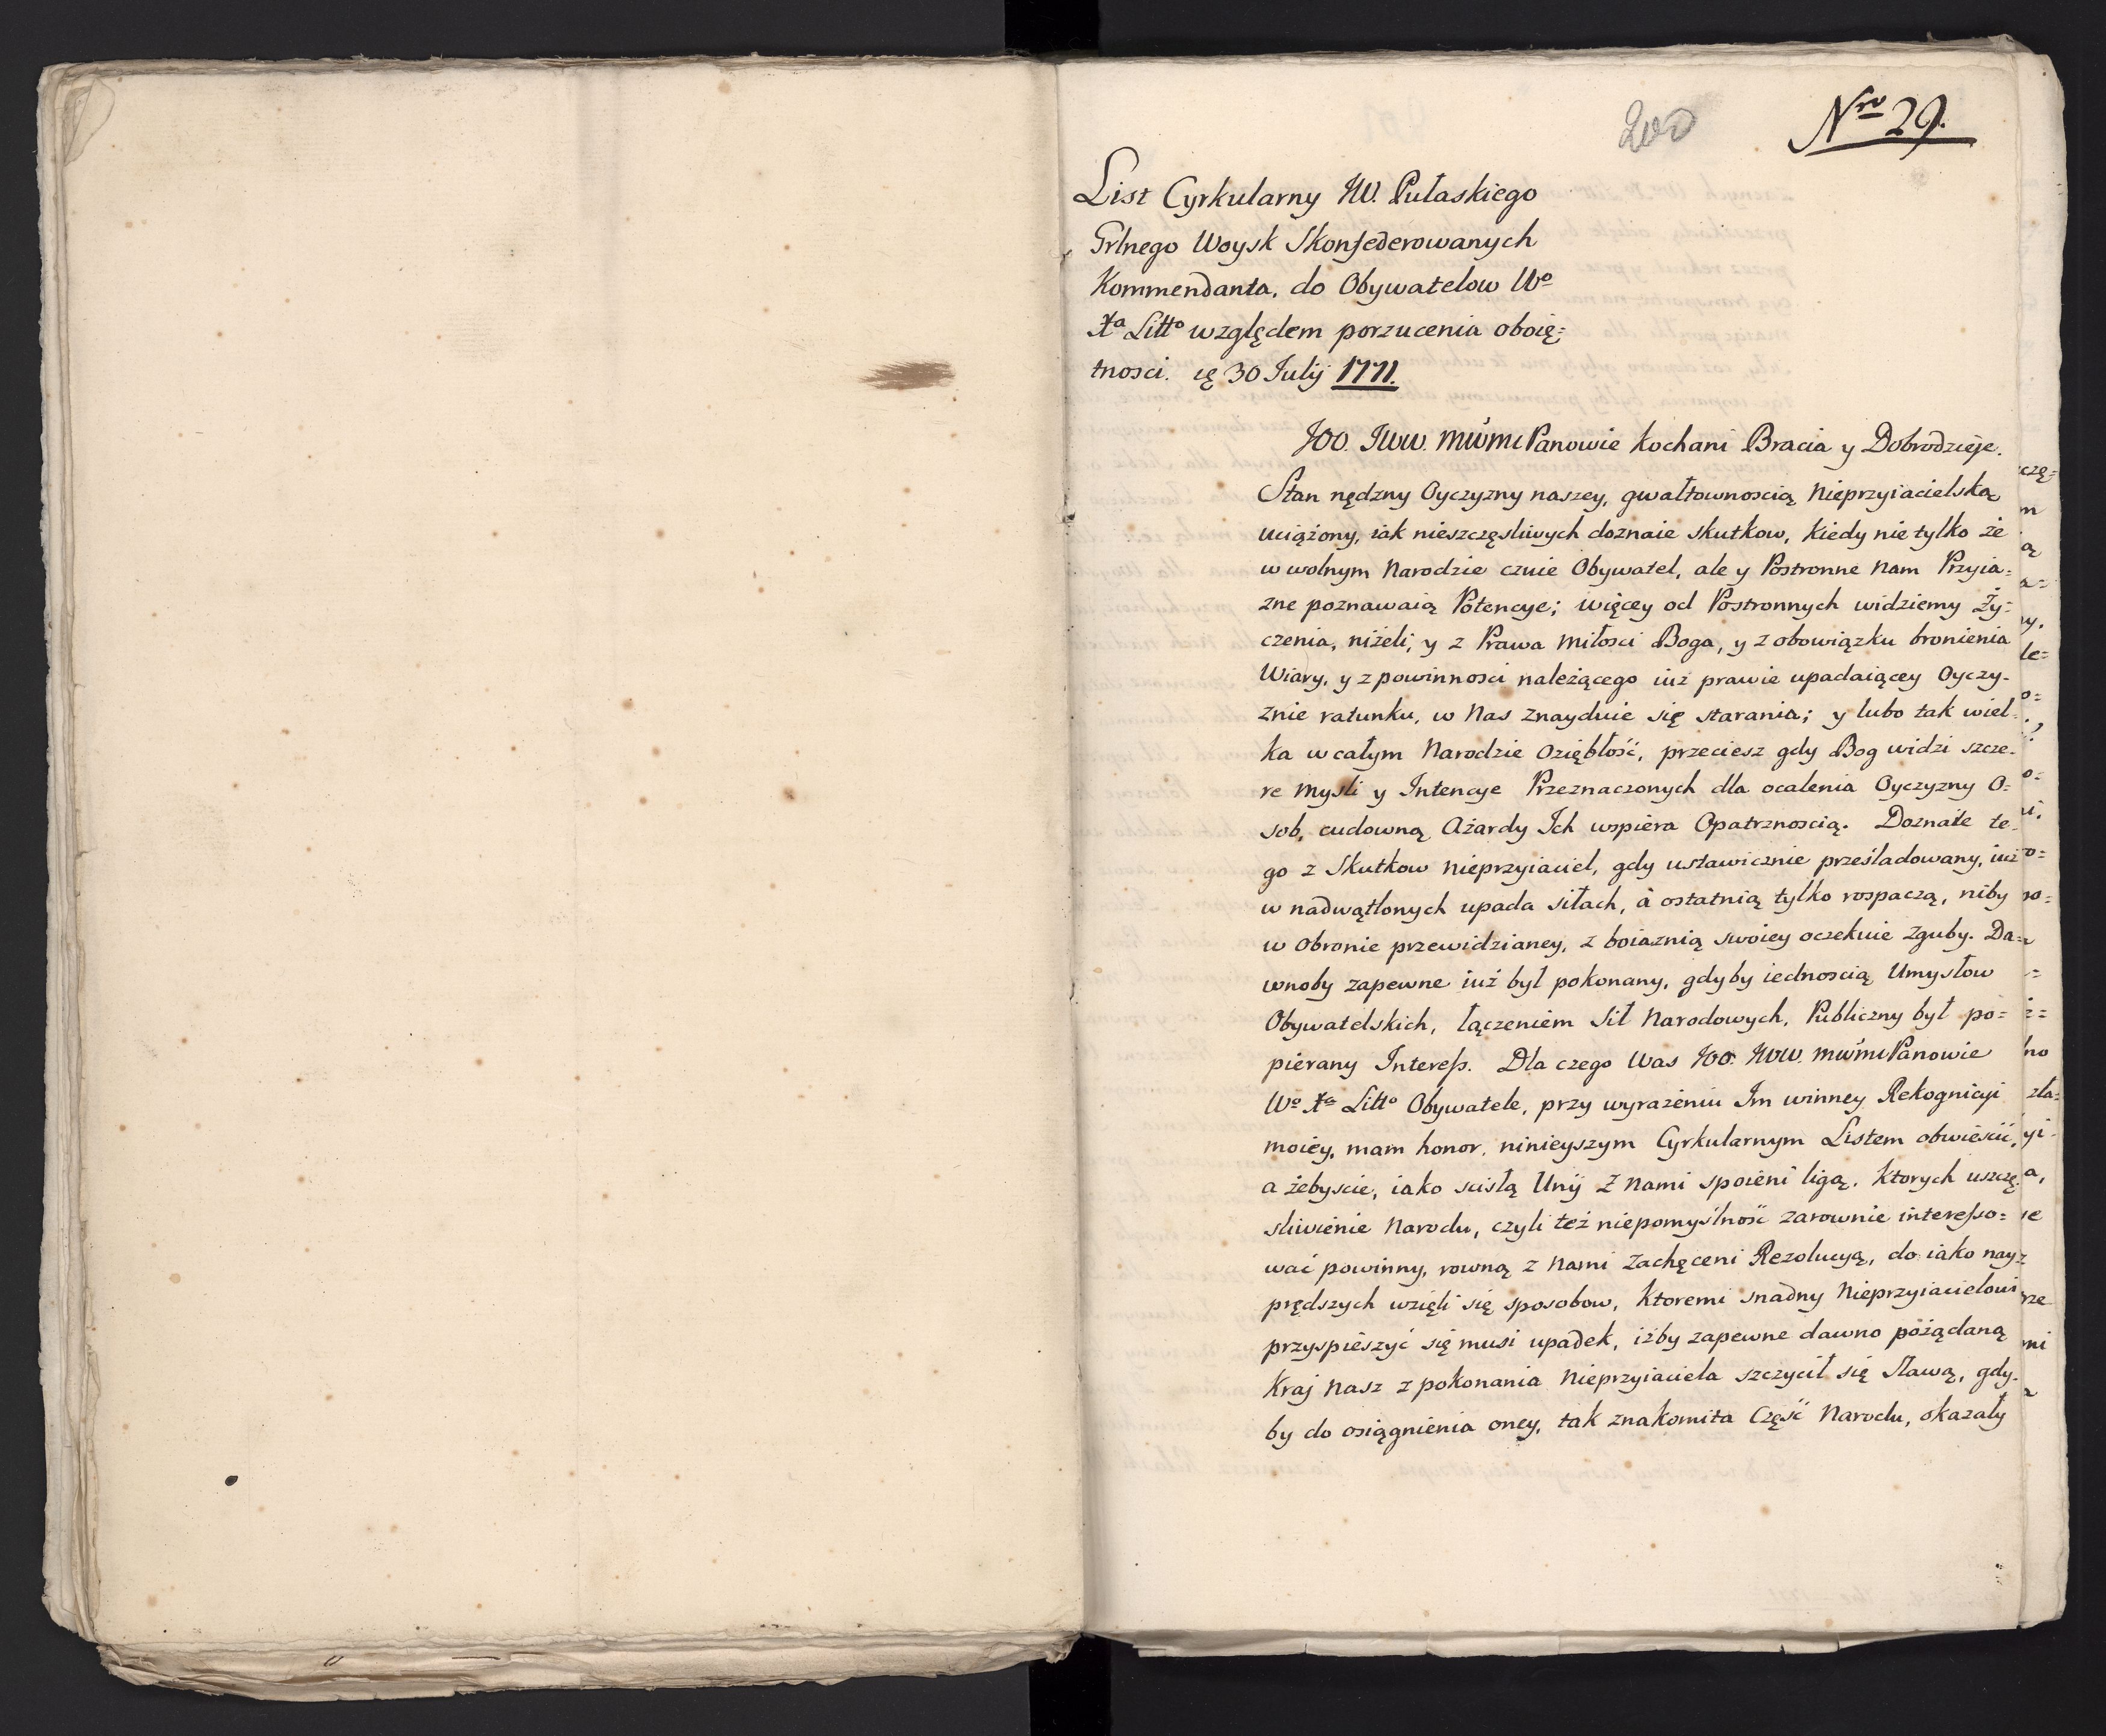 200
Nro 29.
List Cyrkularny JW. Pułaskiego
Grlnego Woysk Skonfederowanych
Kommendanta, do Obywatelow Wo
Xa Litto względem porzucenia oboię=
tnosci. 30 Julij 1771.
JOO. JWW. MWMPanowie kochani Bracia y Dobrodzieje.
Stan nędzny Oyczyzny naszey, gwałtownoscią Nieprzyiacielską
uciążony, iak nieszczęsliwych doznaie skutkow, kiedy nie tylko że
w wolnym Narodzie czuie Obywatel, ale y Postronne Nam Przyia=
zne poznawaią Potencye; więcey od Postronnych widziemy Ży=
czenia, niżeli, y z Prawa Miłosci Boga, y z obowiązku bronienia
Wiary, y z powinnosci należącego iuż prawie upadaiącey Oyczy-
znie ratunku, w Nas znayduie się starania; y lubo tak wiel-
ka w całym Narodzie oziębłość, przeciesz gdy Bog widzi szcze-
re mysli y Intencye Przeznaczonych dla ocalenia Oyczyzny O=
sob, cudowną Ażardy Ich wspiera Opatrznoscią. Doznałe te-
go z Skutkow nieprzyiaciel, gdy ustawicznie prześladowany, iuż
w nadwątlonych upada siłach, à ostatnią tylko rospaczą, niby
w obronie przewidzianey, z boiaznią swoiey oczekuie zguby. Da=
wnoby zapewne iuż był pokonany, gdyby iednoscią Umysłow
Obywatelskich, łączeniem Sił Narodowych, Publiczny był po=
pierany Interess. Dla czego Was JOO. JWW. MWMPanowie
Wo Xa Litto Obywatele, przy wyrażeniu Im winney Rekognicyi
moiey, mam honor, ninieyszym Cyrkularnym Listem obwieścić,
a żebyscie, iako scisłą Unij z Nami spoieni ligą, ktorych uszczę-
sliwienie Narodu, czyli też niepomyślność zarownie interesso=
wać powinny, rowną z Nami zachęceni Rezolucyą, do iako nay=
prędszych wzięli się sposobow, ktoremi snadny Nieprzyiacielowi
przyspieszyć się musi upadek, iżby zapewne dawno pożądaną
Kraj nasz z pokonania Nieprzyiaciela szczycił się Sławą, gdy-
by do osiągnienia oney, tak znakomita Część Narodu, okazały